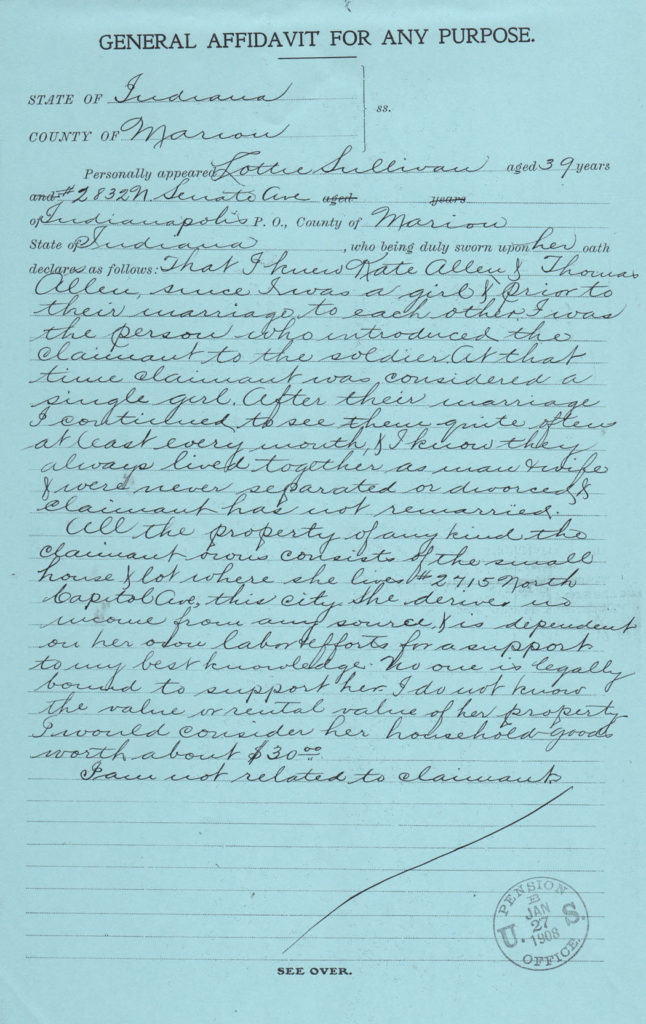 GENERAL AFFIDAVIT FOR ANY PURPOSE.
STATE OF Indiana
ss.
COUNTY OF Marion
Personally appeared Lottie Sullivan aged 39 years
and # 2832 N. Senate Ave aged years
of Indianapolis P. O., County of Marion
State of Indiana , who being duly sworn upon her oath
declares as follows: That I knew Kate Allen & Thomas
Allen, since I was a girl & prior to
their marriage to each other, I was
the person who introduced the
claimant to the soldier. At that
time claimant was considered a
single girl. After their marriage
I continued to see them quite often
at least every month, & I know they
always lived together as man & wife
& were never separated or divorced, &
claimant has not remarried.
All the property of any kind the
claimant owns consists of the small
house & lot where she lives # 2715 North
Capitol Ave, this city. She derives no
income from any source, & is dependent
on her own labor & efforts for a support
to my best knowledge. No one is legally
bound to support her. I do not know
the value or rental value of her property
I would consider her household goods
worth about $30.00
I am not related to claimant
PENSION
B
JAN
27
1908
U. S.
OFFICE.
SEE OVER.